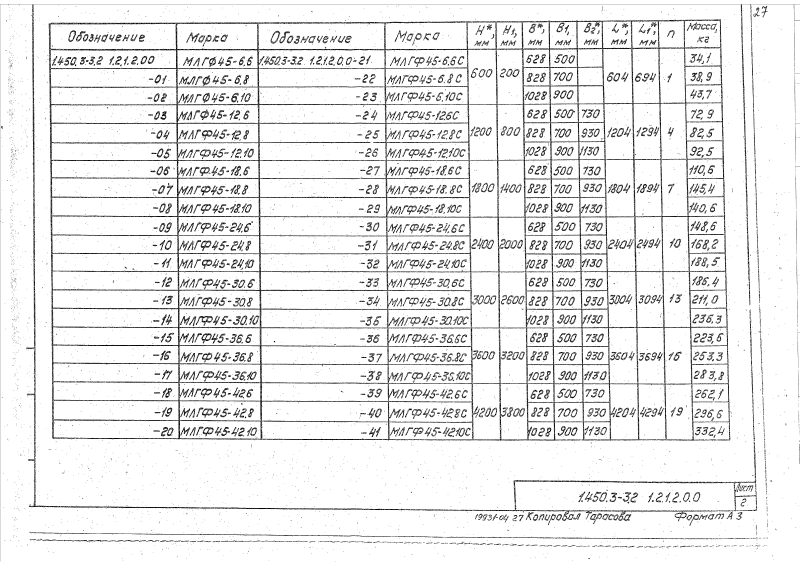 27
Обозначение Марка Обозначение Марка H*, мм H1, мм B*, мм B1, мм B2*, мм L*, мм L1*, мм n Масса, кг
1.450.3-3.2 1.2.1.2.0.0 МЛГФ45-6,6 1.450.3-3.2 1.2.1.2.0.0-21 МЛГФ45-6,6С 600 200 628 500 604 694 1 34,1
-01 МЛГФ45-6,8 -22 МЛГФ45-6,8С 828 700 38,9
-02 МЛГФ45-6,10 -23 МЛГФ45-6,10С 1028 900 43,7
-03 МЛГФ45-12,6 -24 МЛГФ45-12,6С 1200 800 628 500 730 1204 1294 4 72,9
-04 МЛГФ45-12,8 -25 МЛГФ45-12,8С 828 700 930 82,5
-05 МЛГФ45-12,10 -26 МЛГФ45-12,10С 1028 900 1130 92,5
-06 МЛГФ45-18,6 -27 МЛГФ45-18,6С 1800 1400 628 500 730 1804 1894 7 110,6
-07 МЛГФ45-18,8 -28 МЛГФ45-18,8С 828 700 930 145,4
-08 МЛГФ45-18,10 -29 МЛГФ45-18,10С 1028 900 1130 140,6
-09 МЛГФ45-24,6 -30 МЛГФ45-24,6С 2400 2000 628 500 730 2404 2494 10 148,6
-10 МЛГФ45-24,8 -31 МЛГФ45-24,8С 828 700 930 168,2
-11 МЛГФ45-24,10 -32 МЛГФ45-24,10С 1028 900 1130 188,5
-12 МЛГФ45-30,6 -33 МЛГФ45-30,6С 3000 2600 628 500 730 3004 3094 13 186,4
-13 МЛГФ45-30,8 -34 МЛГФ45-30,8С 828 700 930 211,0
-14 МЛГФ45-30,10 -35 МЛГФ45-30,10С 1028 900 1130 236,3
-15 МЛГФ45-36,6 -36 МЛГФ45-36,6С 3600 3200 628 500 730 3604 3694 16 223,6
-16 МЛГФ45-36,8 -37 МЛГФ45-36,8С 828 700 930 253,3
-17 МЛГФ45-36,10 -38 МЛГФ45-36,10С 1028 900 1130 283,8
-18 МЛГФ45-42,6 -39 МЛГФ45-42,6С 4200 3800 628 500 730 4204 4294 19 262,1
-19 МЛГФ45-42,8 -40 МЛГФ45-42,8С 828 700 930 296,6
-20 МЛГФ45-42,10 -41 МЛГФ45-42,10С 1028 900 1130 332,4
1.450.3-3.2 1.2.1.2.0.0
Лист
2
19931-04 27 Копировал Тарасова Формат А3